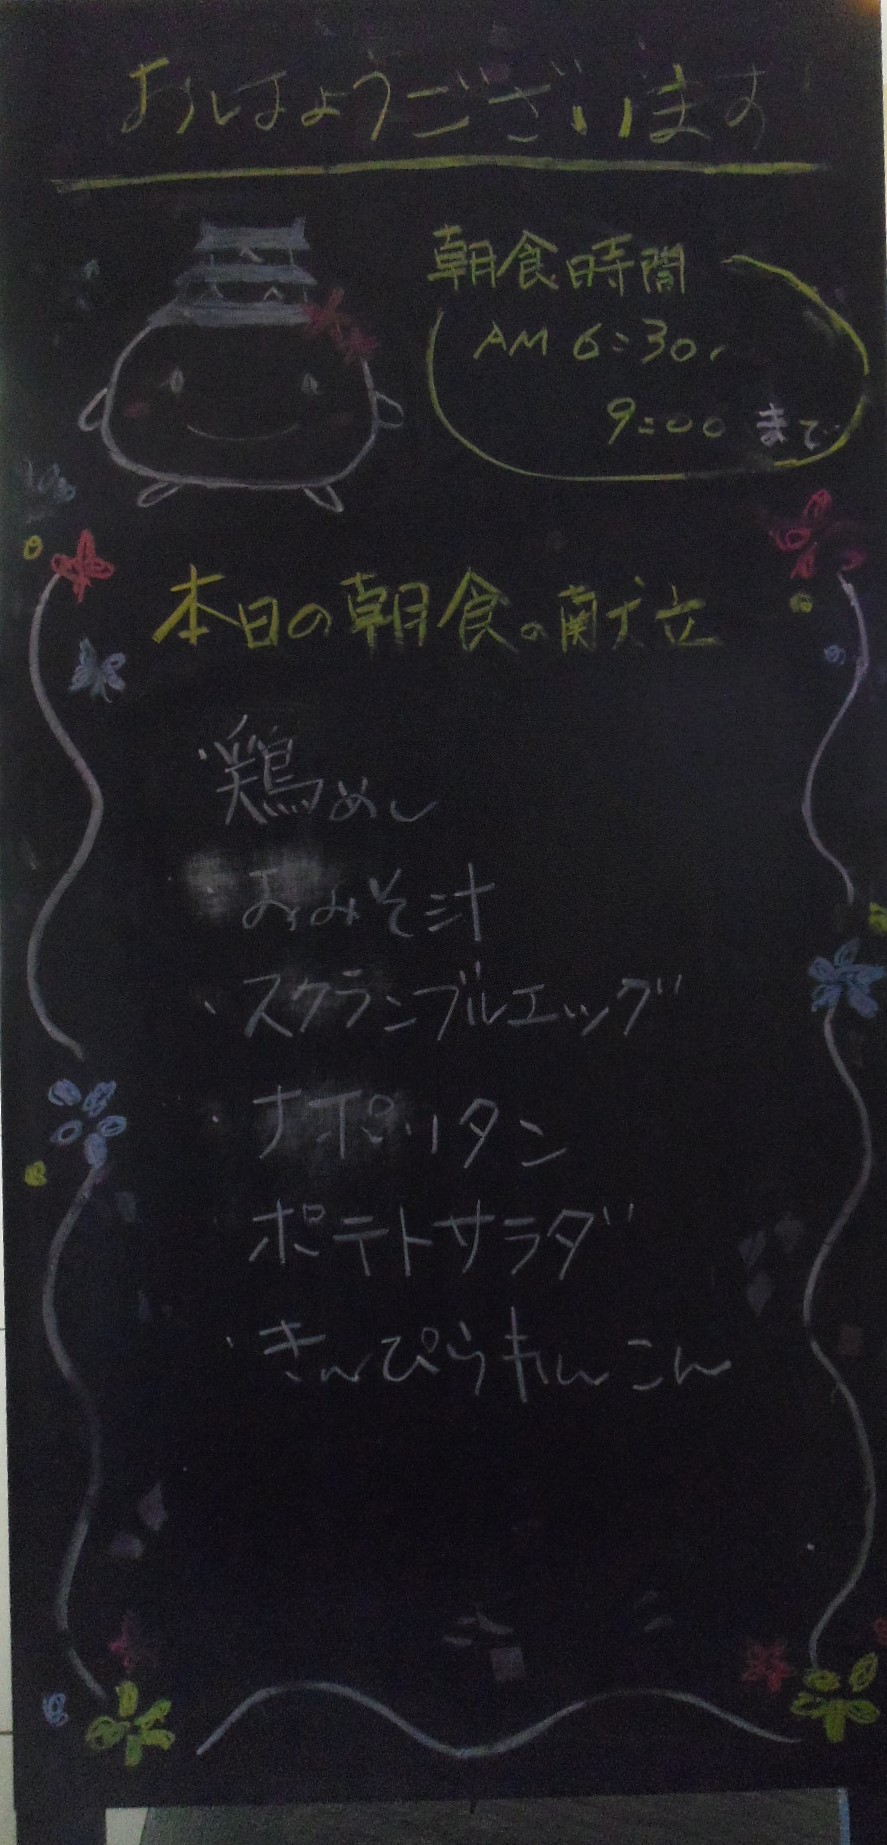 おはようございます
朝食時間
AM 6:30~
9:00 まで
本日の朝食の献立
・鶏めし
・おみそ汁
・スクランブルエッグ
・ナポリタン
ポテトサラダ
・きんぴられんこん